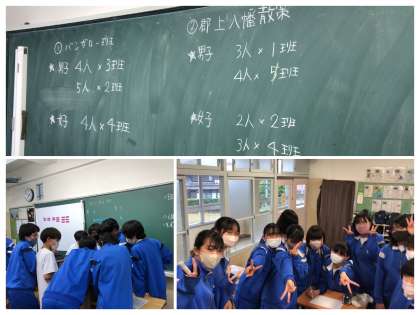 ① バンガロー班
★男子 4人×3班
5人×2班
★女子 4人×4班
② 郡上八幡散策
★男子 3人×1班
4人×5班
★女子 2人×2班
3人×4班